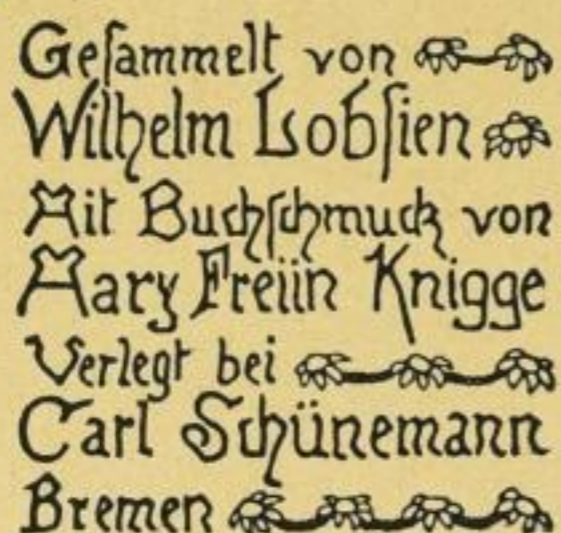 Geſammelt von
Wilhelm Lobſien
Mit Buchſchmuck von
Mary Freiin Knigge
Verlegt bei
Carl Schünemann
Bremen